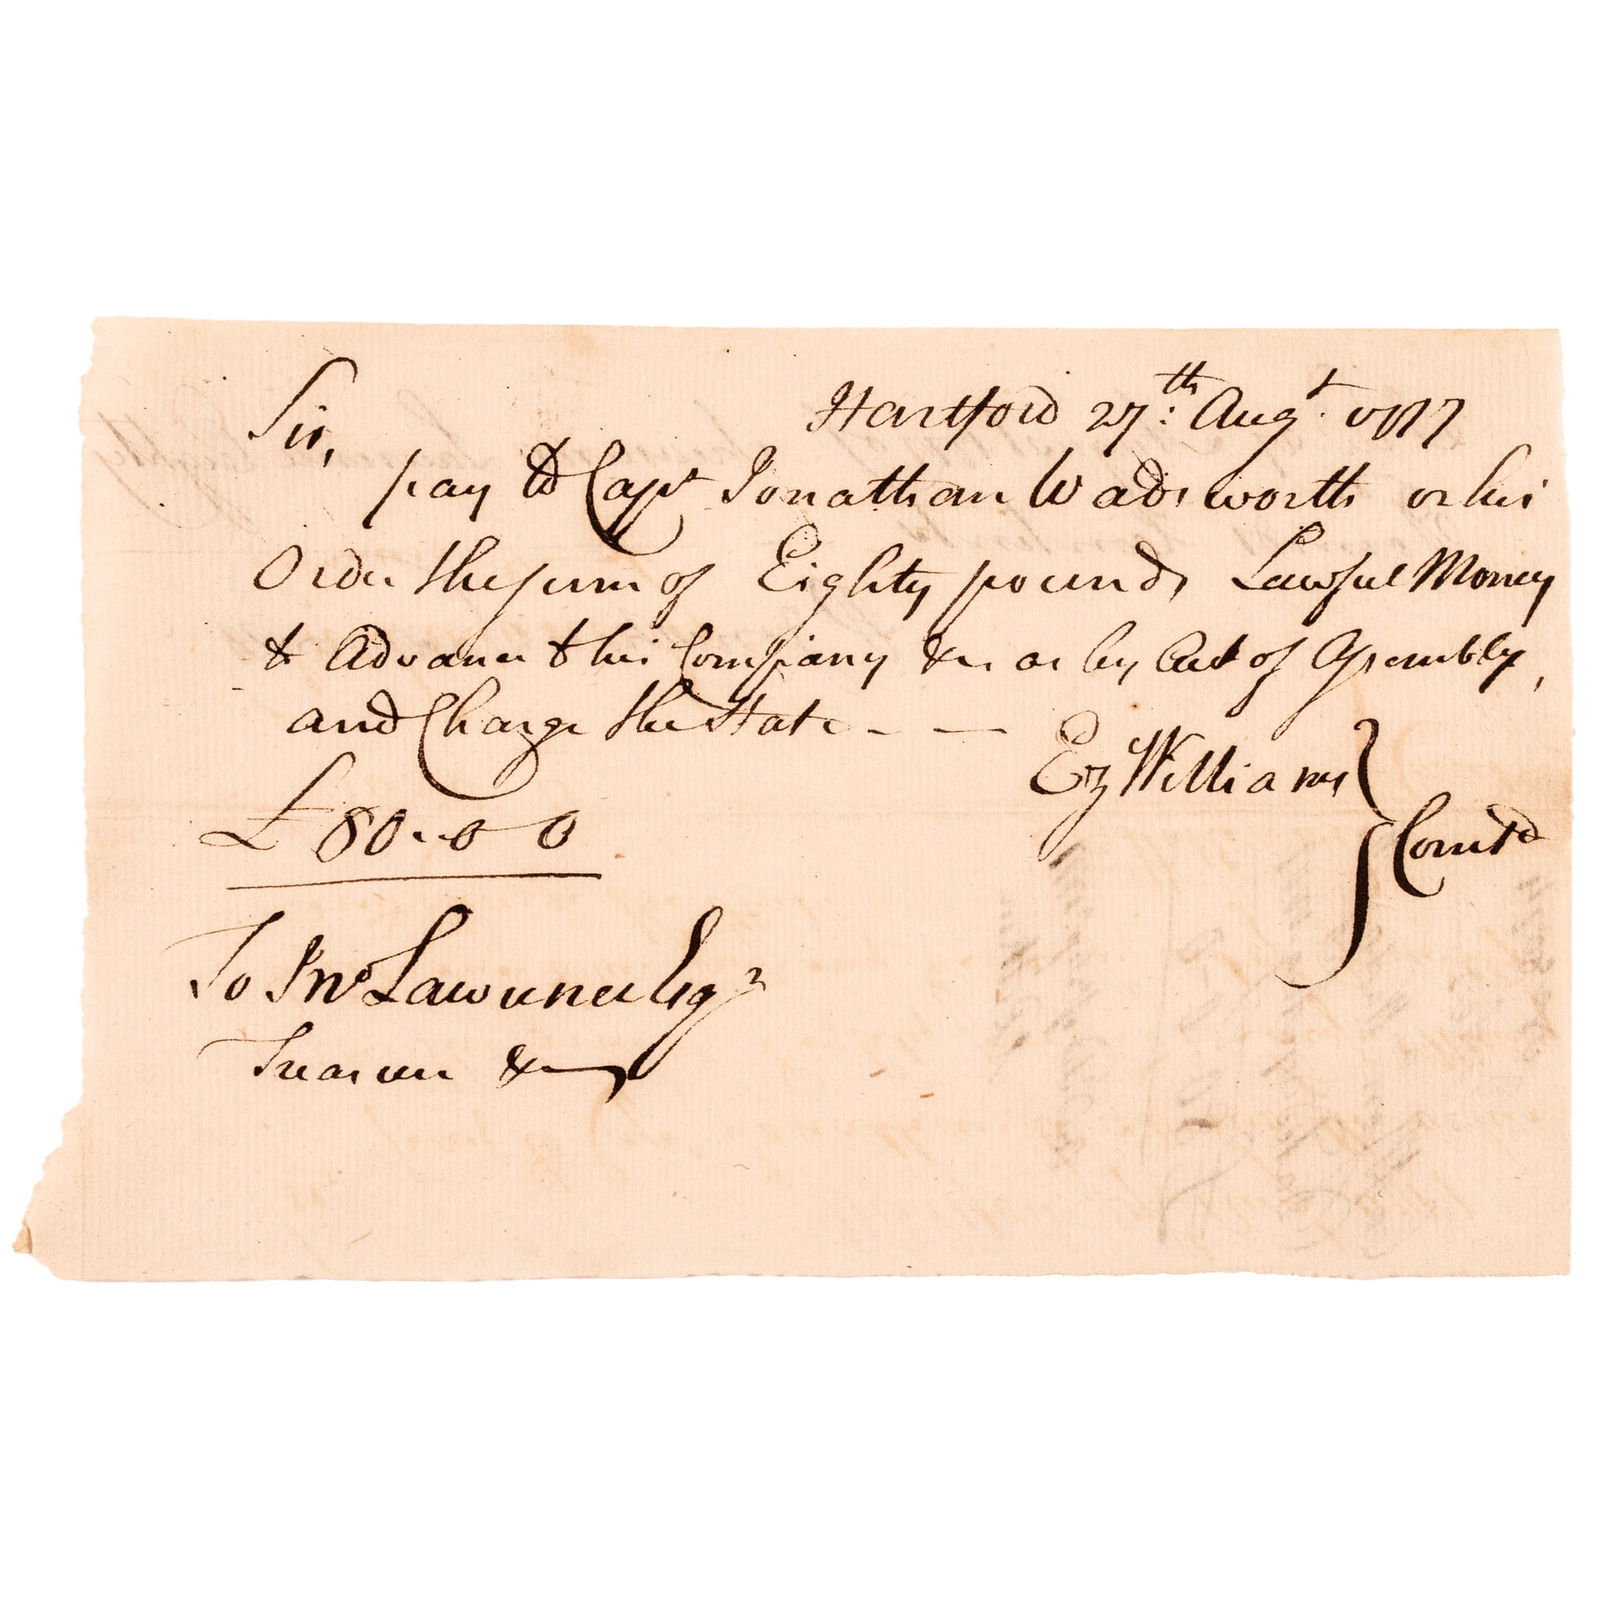 Hartford 27th: Augt. 1777
Sir,
pay to Capt Jonathan Wadsworth or his
Order the sum of Eighty pounds Lawful Money
to Advance to his Company &c as by Act of Assembly,
and Charge the State - -
Ez Williams } Comtd
£80..0 0
To Jno Lawrence Esqr
Treasurer &c